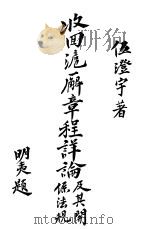 伍澄宇著
收回滬廨章程詳論及其關係法規
明夷題
mtoou.info